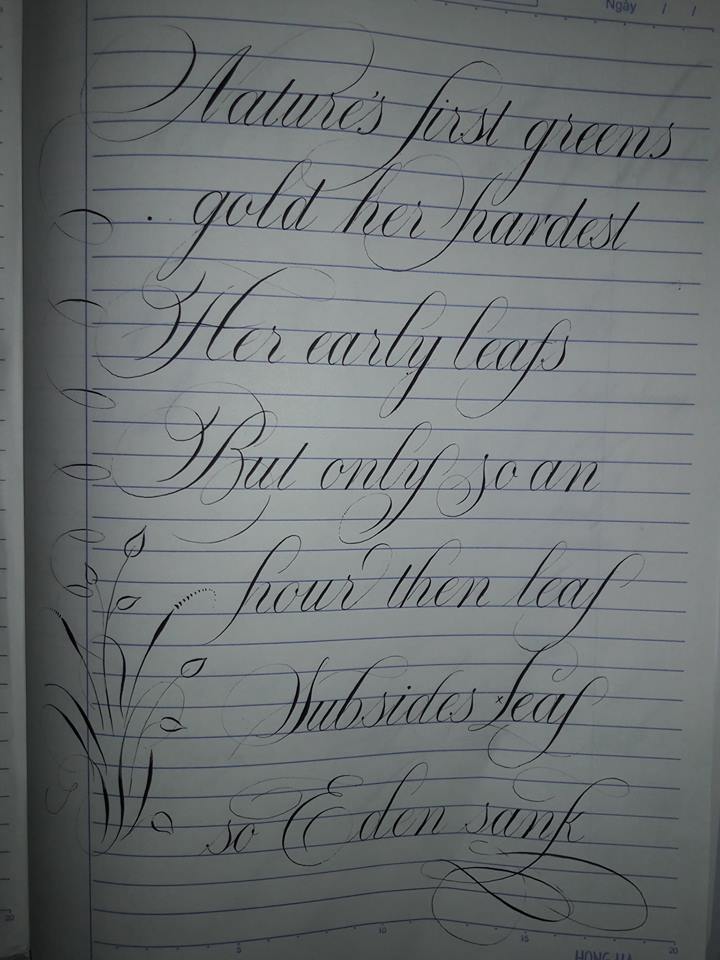 Ngày / /
Nature's first greens
. gold her hardest
Her early leafs
But only so an
hour then leaf
Subsides leaf
so Eden sank
5 10 15 20
20
HONG HA